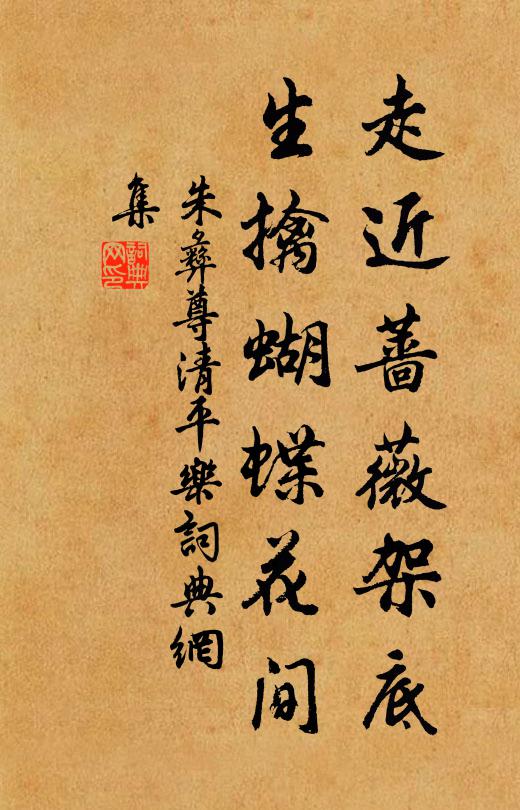 走近蔷薇架底
生擒蝴蝶花间
朱彝尊清平樂詞典網
集
詞典網印